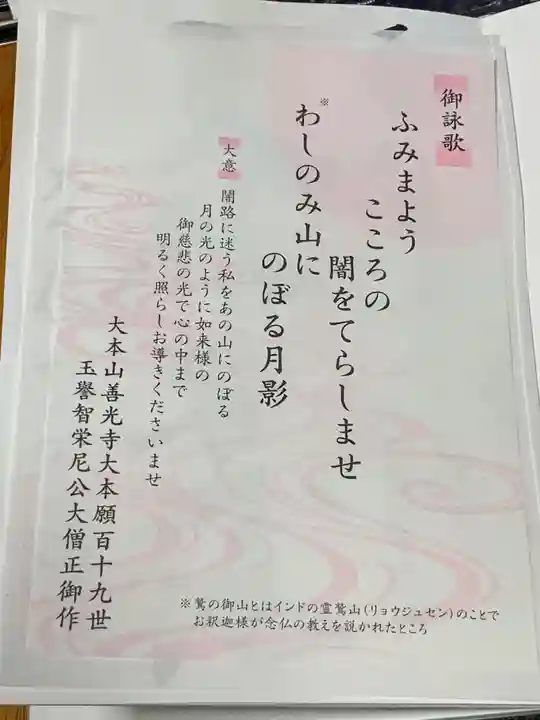 御詠歌
ふみまよう
こころの
闇をてらしませ
※わしのみ山に
のぼる月影
大意
闇路に迷う私をあの山にのぼる
月の光のように如来様の
御慈悲の光で心の中まで
明るく照らしお導きくださいませ
大本山善光寺大本願百十九世
玉譽智栄尼公大僧正御作
※鷲の御山とはインドの霊鷲山(リョウジュセン)のことで
お釈迦様が念仏の教えを説かれたところ